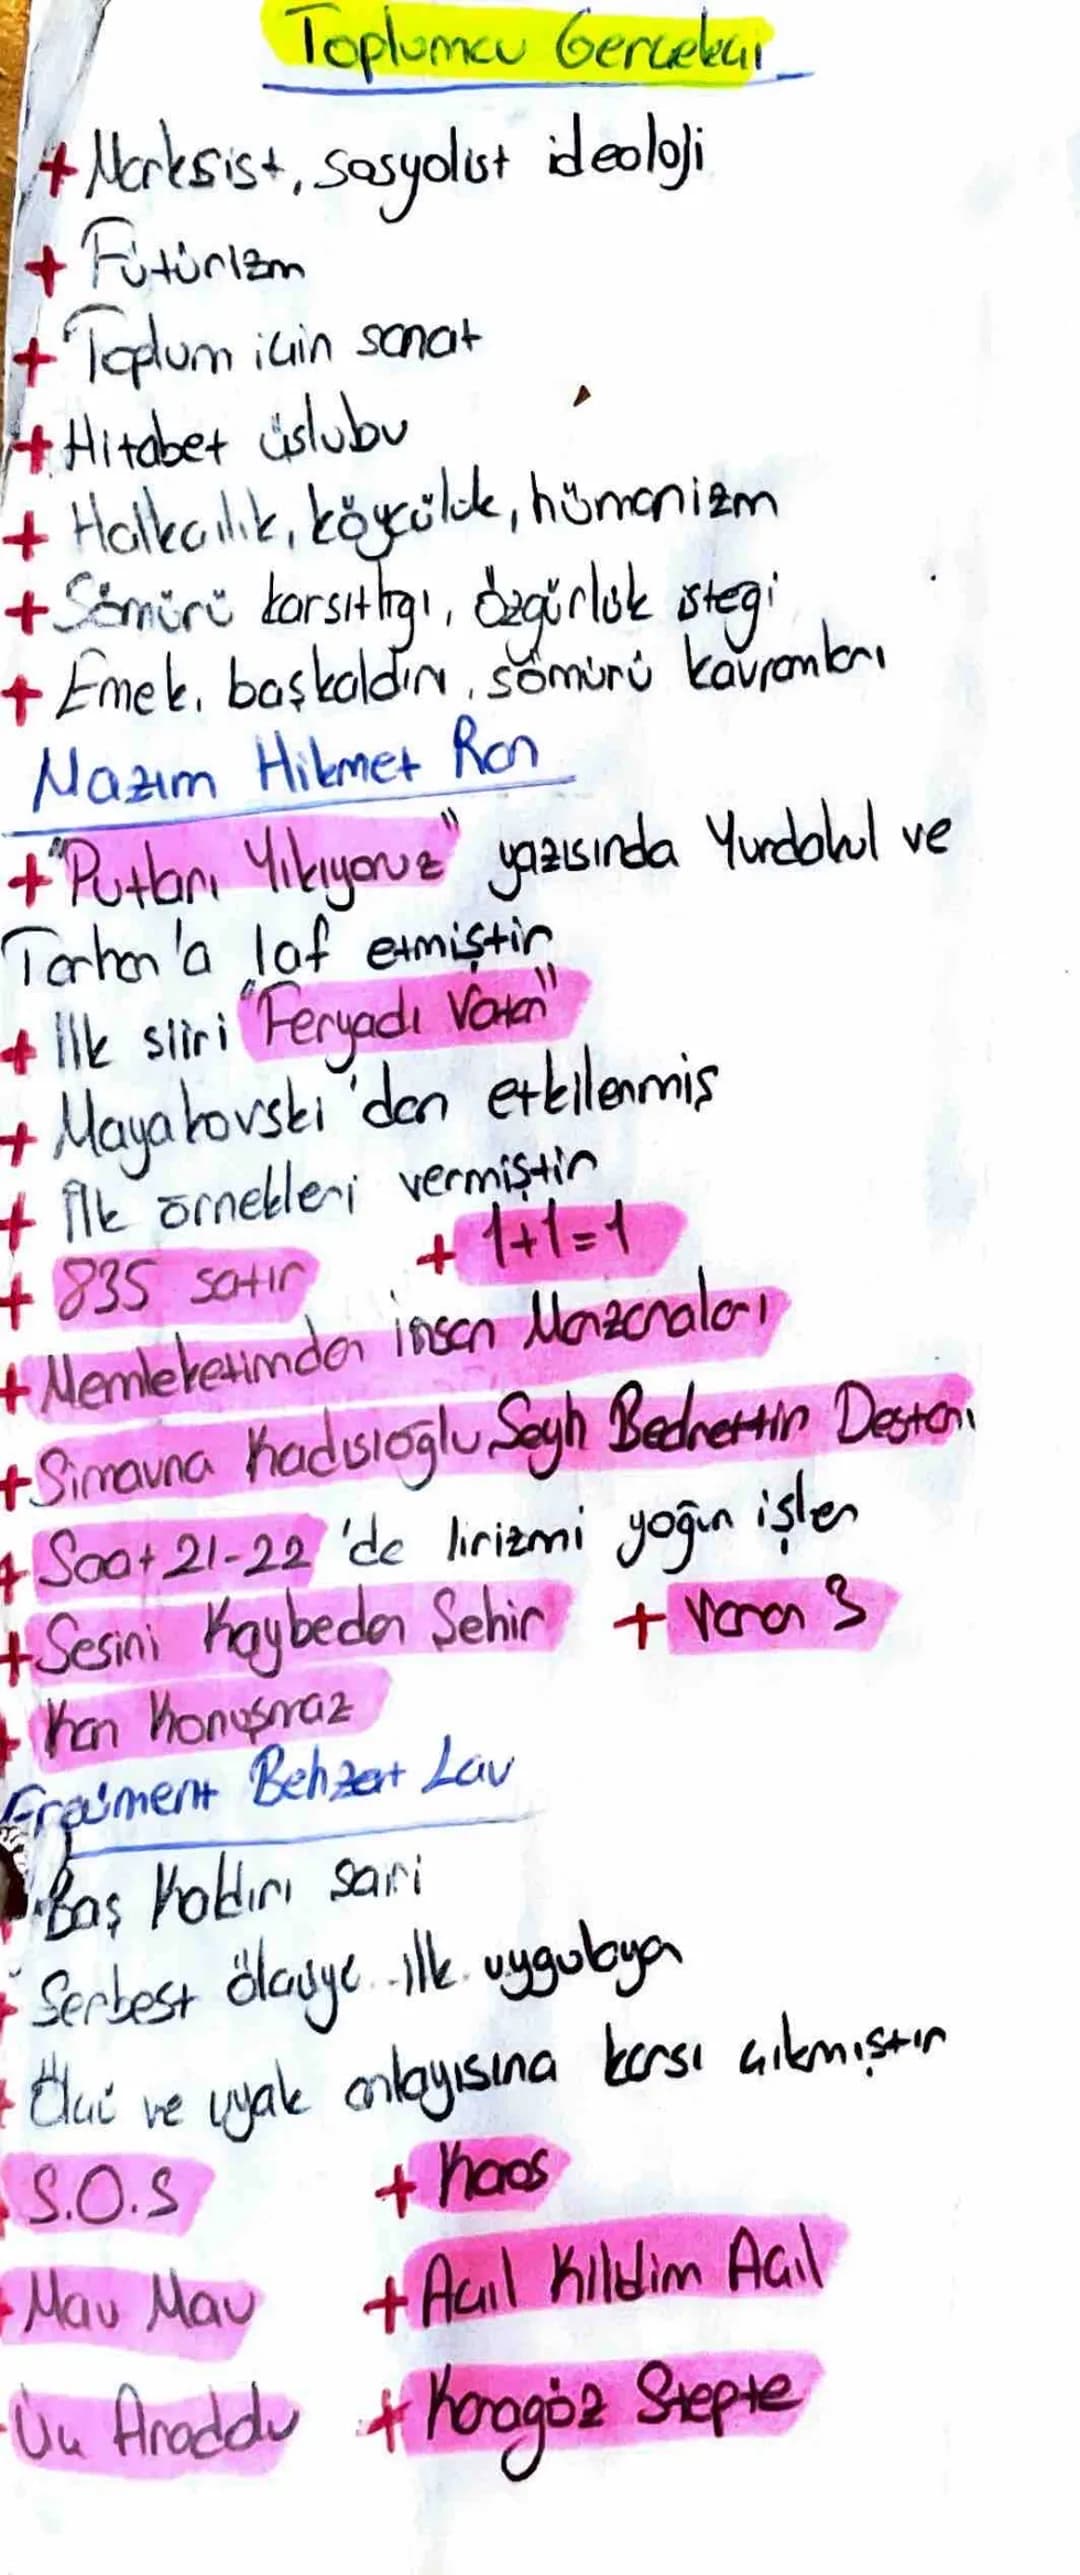 Toplumcu Gerçekçi
+ Marksist, sosyolist ideoloji
+ Fütürizm
+ Toplum için sanat
+ Hitabet üslubu
+ Halkçılık, köycülük, hümanizm
+ Sömürü karsıtlıgı, özgürlük istegi
+ Emek, başkaldırı, sömürü kavramları
Nazım Hikmet Ran
+ "Putları Yıkıyoruz" yazısında Yurdakul ve
Tarhan'a laf etmiştir
+ İlk şiiri "Feryadı Vatan"
+ Mayakovski'den etkilenmiş
+ İlk örnekleri vermiştir
+ 835 satır + 1+1=1
+ Memleketimden insan Manzaraları
+ Simavna Kadısıoğlu Şeyh Bedrettin Destanı
+ Saat 21-22 'de lirizmi yoğun işler
+ Sesini Kaybeden Şehir + Varan 3
+ Kan Konuşmaz
Ercüment Behzat Lav
Baş Kaldırı şairi
+ Serbest ölçüyü ilk uygulayan
+ Ölçü ve uyak anlayışına karsı çıkmıştır
S.O.S + Kaos
Mau Mau + Açıl Kilidim Açıl
Üç Anaddu + Karagöz Stepte